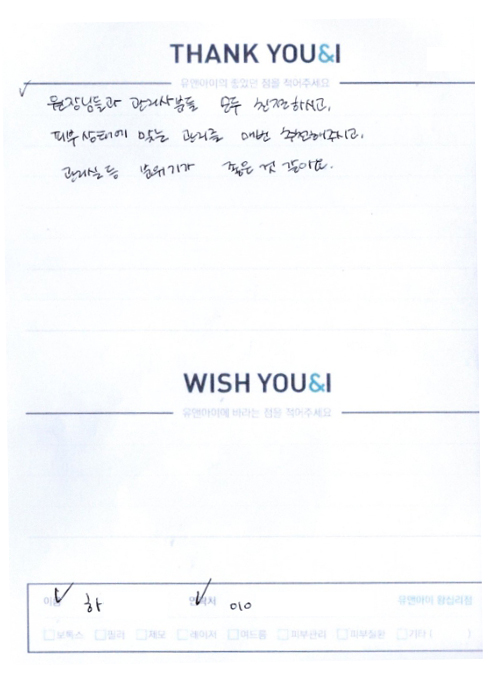 THANK YOU&I
유앤아이의 좋았던 점을 적어주세요
원장님들과 관리사분들 모두 친절하시고,
피부 상태에 맞는 관리를 매번 추천해주시고,
관리실 등 분위기가 좋은 것 같아요.
WISH YOU&I
유앤아이에 바라는 점을 적어주세요
이름 하 연락처 010 유앤아이 왕십리점
보톡스 필러 제모 레이저 여드름 피부관리 피부질환 기타 ( )